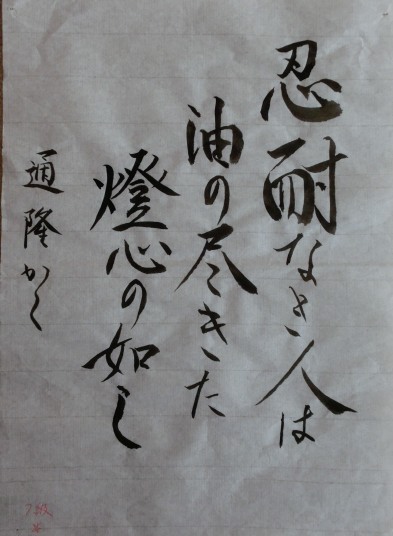 忍耐なき人は
油の尽きた
燈心の如し
通隆かく
7級